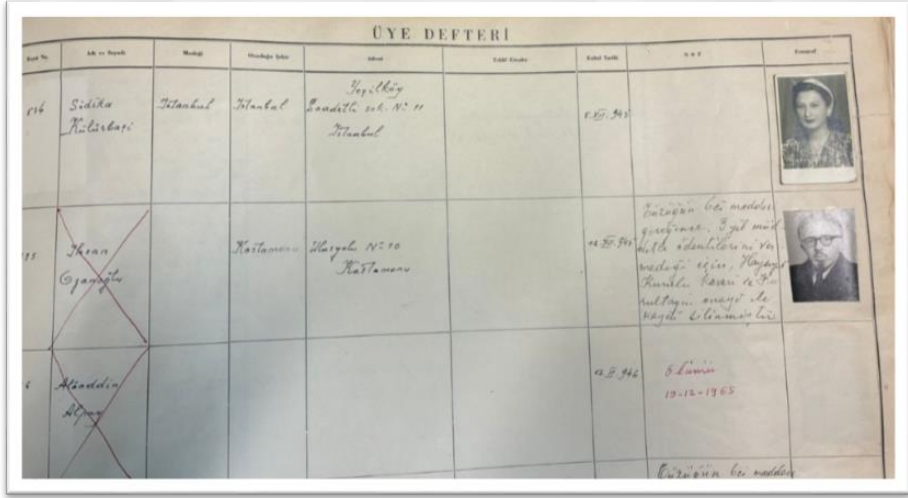 ÜYE DEFTERİ
Adı ve Soyadı Mesleği Oturduğu Şehir Adresi Kabul Tarihi NOT Fotoğraf
Sıdıka
Külürbaşi
İstanbul
İstanbul
Yeşilköy
sok. Nº 11
İstanbul
8.XII.945
İhsan
Ozanoğlu
Kastamonu
Nº 10
Kastamonu
Tüzüğün 6cı maddesi
gereğince, 3 yıl müd
detle ödentilerini ver
mediği için, Haysiyet
Kurulu kararı ve Ku
rultayın onayı ile
kaydı silinmiştir
6
Alâaddin
Alpay
946
Ölümü
19-12-1965
Tüzüğün 6cı maddesi